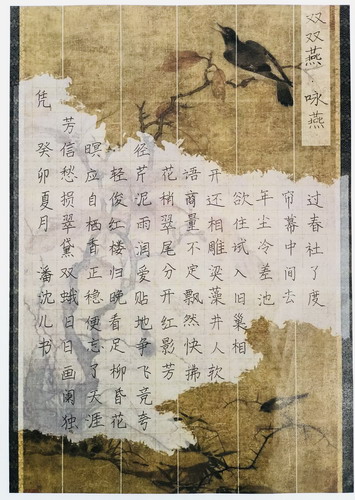 双双燕·咏燕
过春社了度
帘幕中间去
年尘冷差池
欲住试入旧巢相
开还相雕梁藻井人软
语商量不定飘然快拂
花梢翠尾分开红影芳
径芹泥雨润爱贴地争飞竞夸
轻俊红楼归晚看足柳昏花
暝应自栖香正稳便忘了天涯
芳信愁损翠黛双蛾日日画阑独
凭 癸卯夏月 潘沈儿书